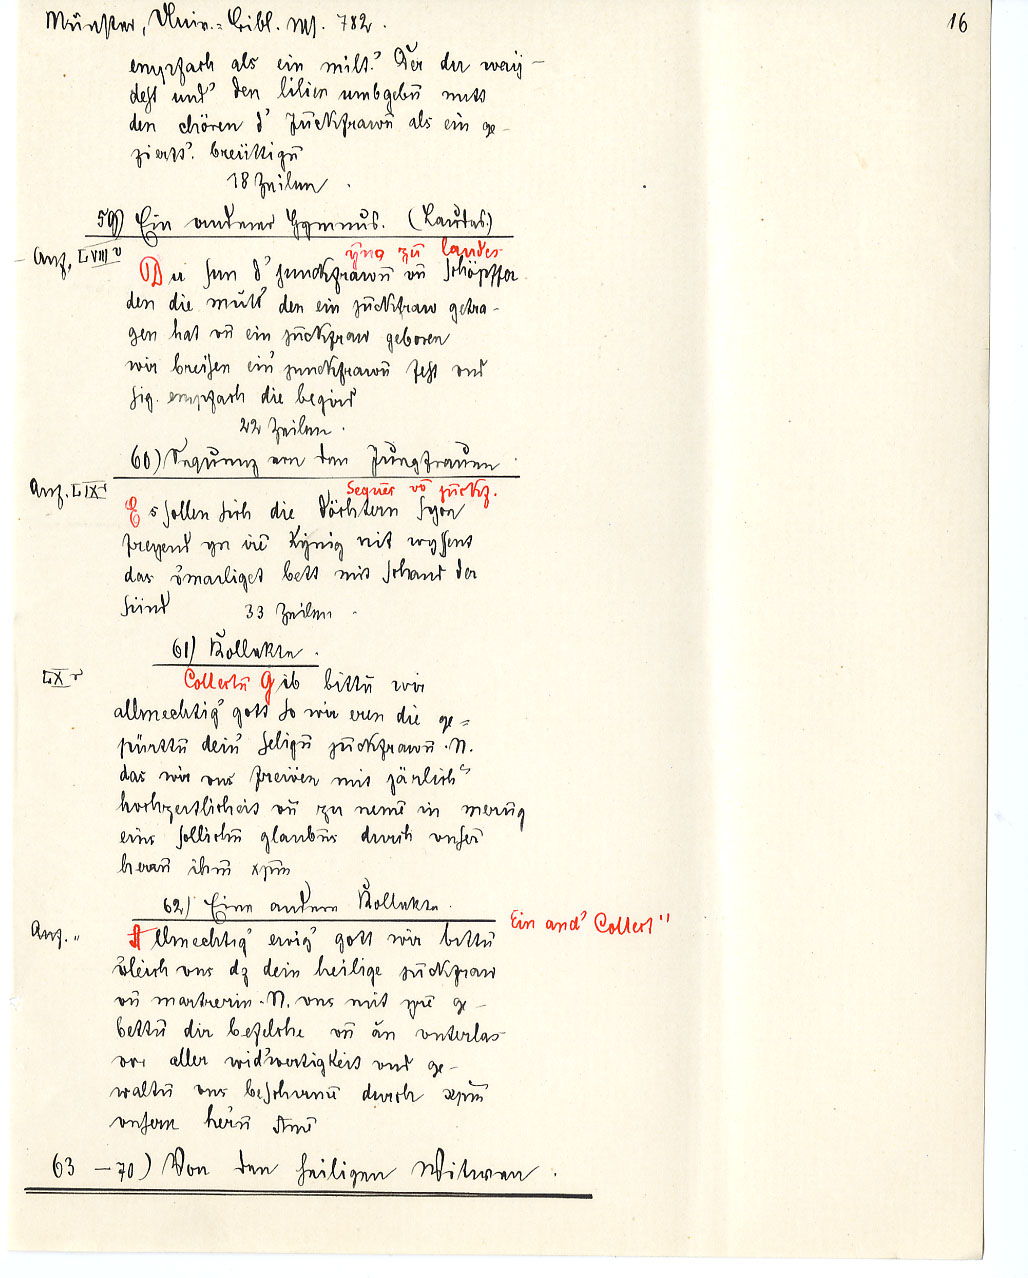 Münster, Univ.-Bibl. Ms. 782.
16
empfach als ein milt' Der du way-
dest und' den lilien umbgebū mitt
den chören d' Jūckfrawū als ein ge-
ziert'. breüttigū
18 Zeilen.
59) Ein anderer Hymnus. (Laudes.)
Anf. LVIII v
ȳmo zū laudes
Du sun d' junckfrawū vn̄ schöpffer
den die mut' den ein jūckfraw getra-
gen hat vn̄ ein jūckfraw geboren
wir breisen ein' junckfrawū fest vnd
sig. empfach die begird
22 Zeilen.
60) Sequenz von den Jungfrauen
Anf. LIX r
Sequēs vō jūckf.
Es sollen sich die Döchtern Syon
freyend yn irē Kynig nit wyssent
das v̄mailiget bett mit schand der
sünd
33 Zeilen.
61) Kollekte.
LX r
Collectū Gib bittū wir
allmechtig' gott so wir eren die ge=
pürttū dein' seligū jūckfrawū .N.
das wir vns freiwen mit järlich'
hochzeitlicheit vn̄ zu nemē in merūg
eins sollichū glaubūs durch vnserˉ
herrū ihm̄ xpm̄
62) Eine andere Kollekte.
Ein and' Collect"
Anf. "
Allmechtig' ewig' gott wir bittū
v̄leich vns dz dein heilige jūckfraw
vn̄ martrerin .N. vns mit yrē ge-
bettū dir befelche vn̄ ān vnterlas
vor aller wid'wertigkeit vnd ge-
waltū vns beschirmē durch xpm̄
vnsern her'n̄ Amē
63-70) Von den heiligen Witwen.